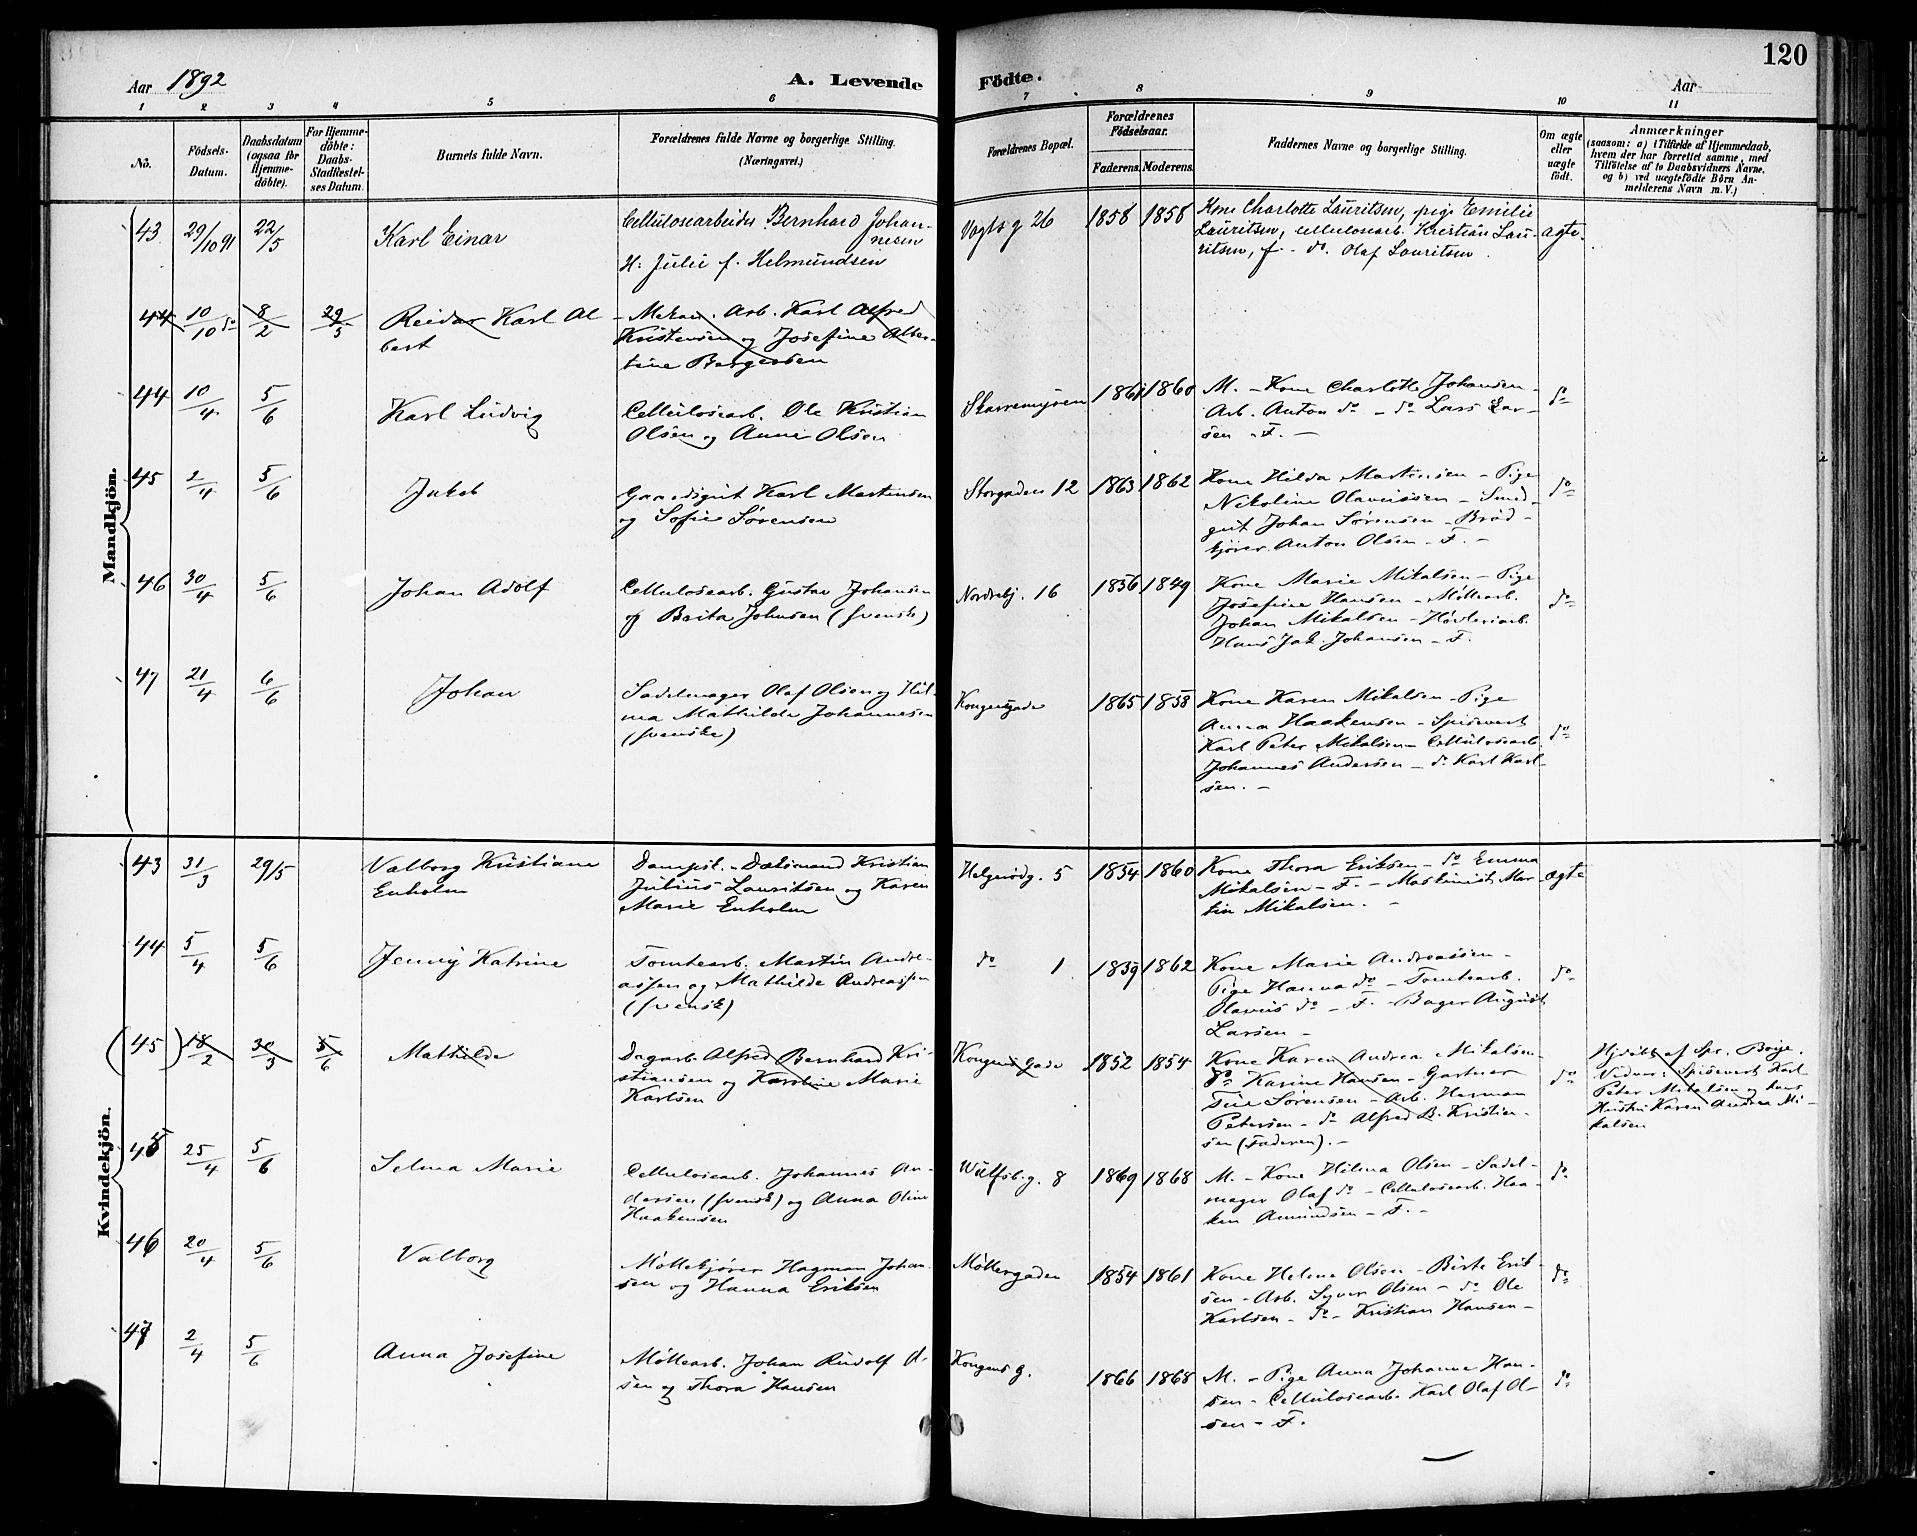 120
Aar 1892
A. Levende
Födte.
Aar
1 2 3 4 5 6 7 8 9 10 11
No.
Födsels-
Datum.
Daabsdatum
(ogsaa för
Hjemme-
döbte).
For Hjemme-
döbte:
Daabs-
Stadfæstel-
ses Datum.
Barnets fulde Navn.
Forældrenes fulde Navne og borgerlige Stilling.
(Næringsvei.)
Forældrenes Bopæl.
Forældrenes
Födselsaar.
Faderens. Moderens.
Faddernes Navne og borgerlige Stilling.
Om ægte
eller
uægte
födt.
Anmærkninger
(saasom: a) i Tilfælde af Hjemmedaab,
hvem der har forrettet samme, med
Tilföielse af to Daabsvidners Navne,
og b) ved uægtefödte Börn An-
melderens Navn m. V.)
Mandkjön.
43 29/10 91 22/5 Karl Einar
Cellulosearbeider Bernhard Johan-
nesen
H: Julie f. Helmundsen
Vogts g 26 1858 1858
Kone Charlotte Lauritsen, pige Emilie
Lauritsen, cellulosearb. Kristian Lau-
ritsen, f. do. Olaf Lauritsen.
ægte
44 10/10 do 8/2 29/5 Reidar Karl Al-
bert
Mekan. Arb. Karl Alfred
Kristensen og Josefine Alber-
tine Bergersen
44 10/4 5/6 Karl Ludvig
Cellulosearb. Ole Kristian
Olsen og Anne Olsen
Skarremyren 1861 1860
M. - Kone Charlotte Johansen -
Arb. Anton do - do Lars Lar-
sen - F. -
do
45 2/4 5/6 Jakob
Gaardsgut Karl Martinsen
og Sofie Sørensen
Storgaden 12 1863 1862
Kone Hilda Martinsen - Pige
Nikoline Olaveissen - Smed-
gut Johan Sørensen - Brød-
kjører Anton Olsen - F. -
do
46 30/4 5/6 Johan Adolf
Cellulosearb. Gustav Johansen
og Brita Johnsen (svenske)
Nordrebj. 16 1856 1849
Kone Marie Mikalsen - Pige
Josefine Hansen - Møllearb.
Johan Mikalsen - Høvleriarb.
Hans Jak. Johansen - F.
do
47 21/4 6/6 Johan
Sadelmager Olaf Olsen og Hil-
ma Mathilde Johannesen
(svenske)
Kongensgade 1865 1858
Kone Karen Mikalsen - Pige
Anna Haakensen - Spisevert
Karl Peter Mikalsen - Cellulosearb.
Johannes Andersen - do Karl Karl-
sen. -
do
Kvindekjön.
43 31/3 29/5 Valborg Kristiane
Enholm
Dampsk. Dæksmand Kristian
Julius Lauritsen og Karen
Marie Enholm
Helgerødg. 5 1854 1860
Kone Thora Eriksen - do Emma
Mikalsen - F. - Maskinist Mar-
tin Mikalsen. -
ægte
44 5/4 5/6 Jenny Katrine
Tomtearb. Martin Andre-
assen og Mathilde Andreassen
(svensk)
do 1 1859 1862
Kone Marie Andreassen -
Pige Hanna do - Tomtearb.
Olaveis do - F. - Bager August
Larsen -
do
(45) 18/2 30/3 5/6 Mathilde
Dagarb. Alfred Bernhard Kri-
stiansen og Karoline Marie
Karlsen
Kongens Gade 1852 1854
Kone Karen Andrea Mikalsen -
do Karine Hansen - Gartner
Tue Sørensen - Arb. Herman
Petersen - do Alfred B. Kristian-
sen (Faderen). -
do
Hjdøbt af Spr. Boige.
Vidner: Spisevert Karl
Peter Mikalsen og hans
Hustru Karen Andrea Mi-
kalsen
45 25/4 5/6 Selma Marie
Cellulosearb. Johannes An-
dersen (svensk) og Anna Oline
Haakensen
Wulfsb. g. 8 1869 1868
M. - Kone Hilma Olsen - Sadel-
mager Olaf do - Cellulosearb. Haa-
ken Amundsen - F. -
do
46 20/4 5/6 Valborg
Møllekjører Hagman Johan-
sen og Hanna Eriksen
Møllergaden 1854 1861
Kone Helene Olsen - Birte Erik-
sen - Arb. Syver Olsen - do Ole
Karlsen - do - Kristian Hansen -
do
47 2/4 5/6 Anna Josefine
Møllearb. Johan Rudolf Ol-
sen og Thora Hansen
Kongens g. 1866 1868
M. - Pige Anna Johanne Han-
sen - Cellulosearb. Karl Olaf Ol-
sen - F.
do